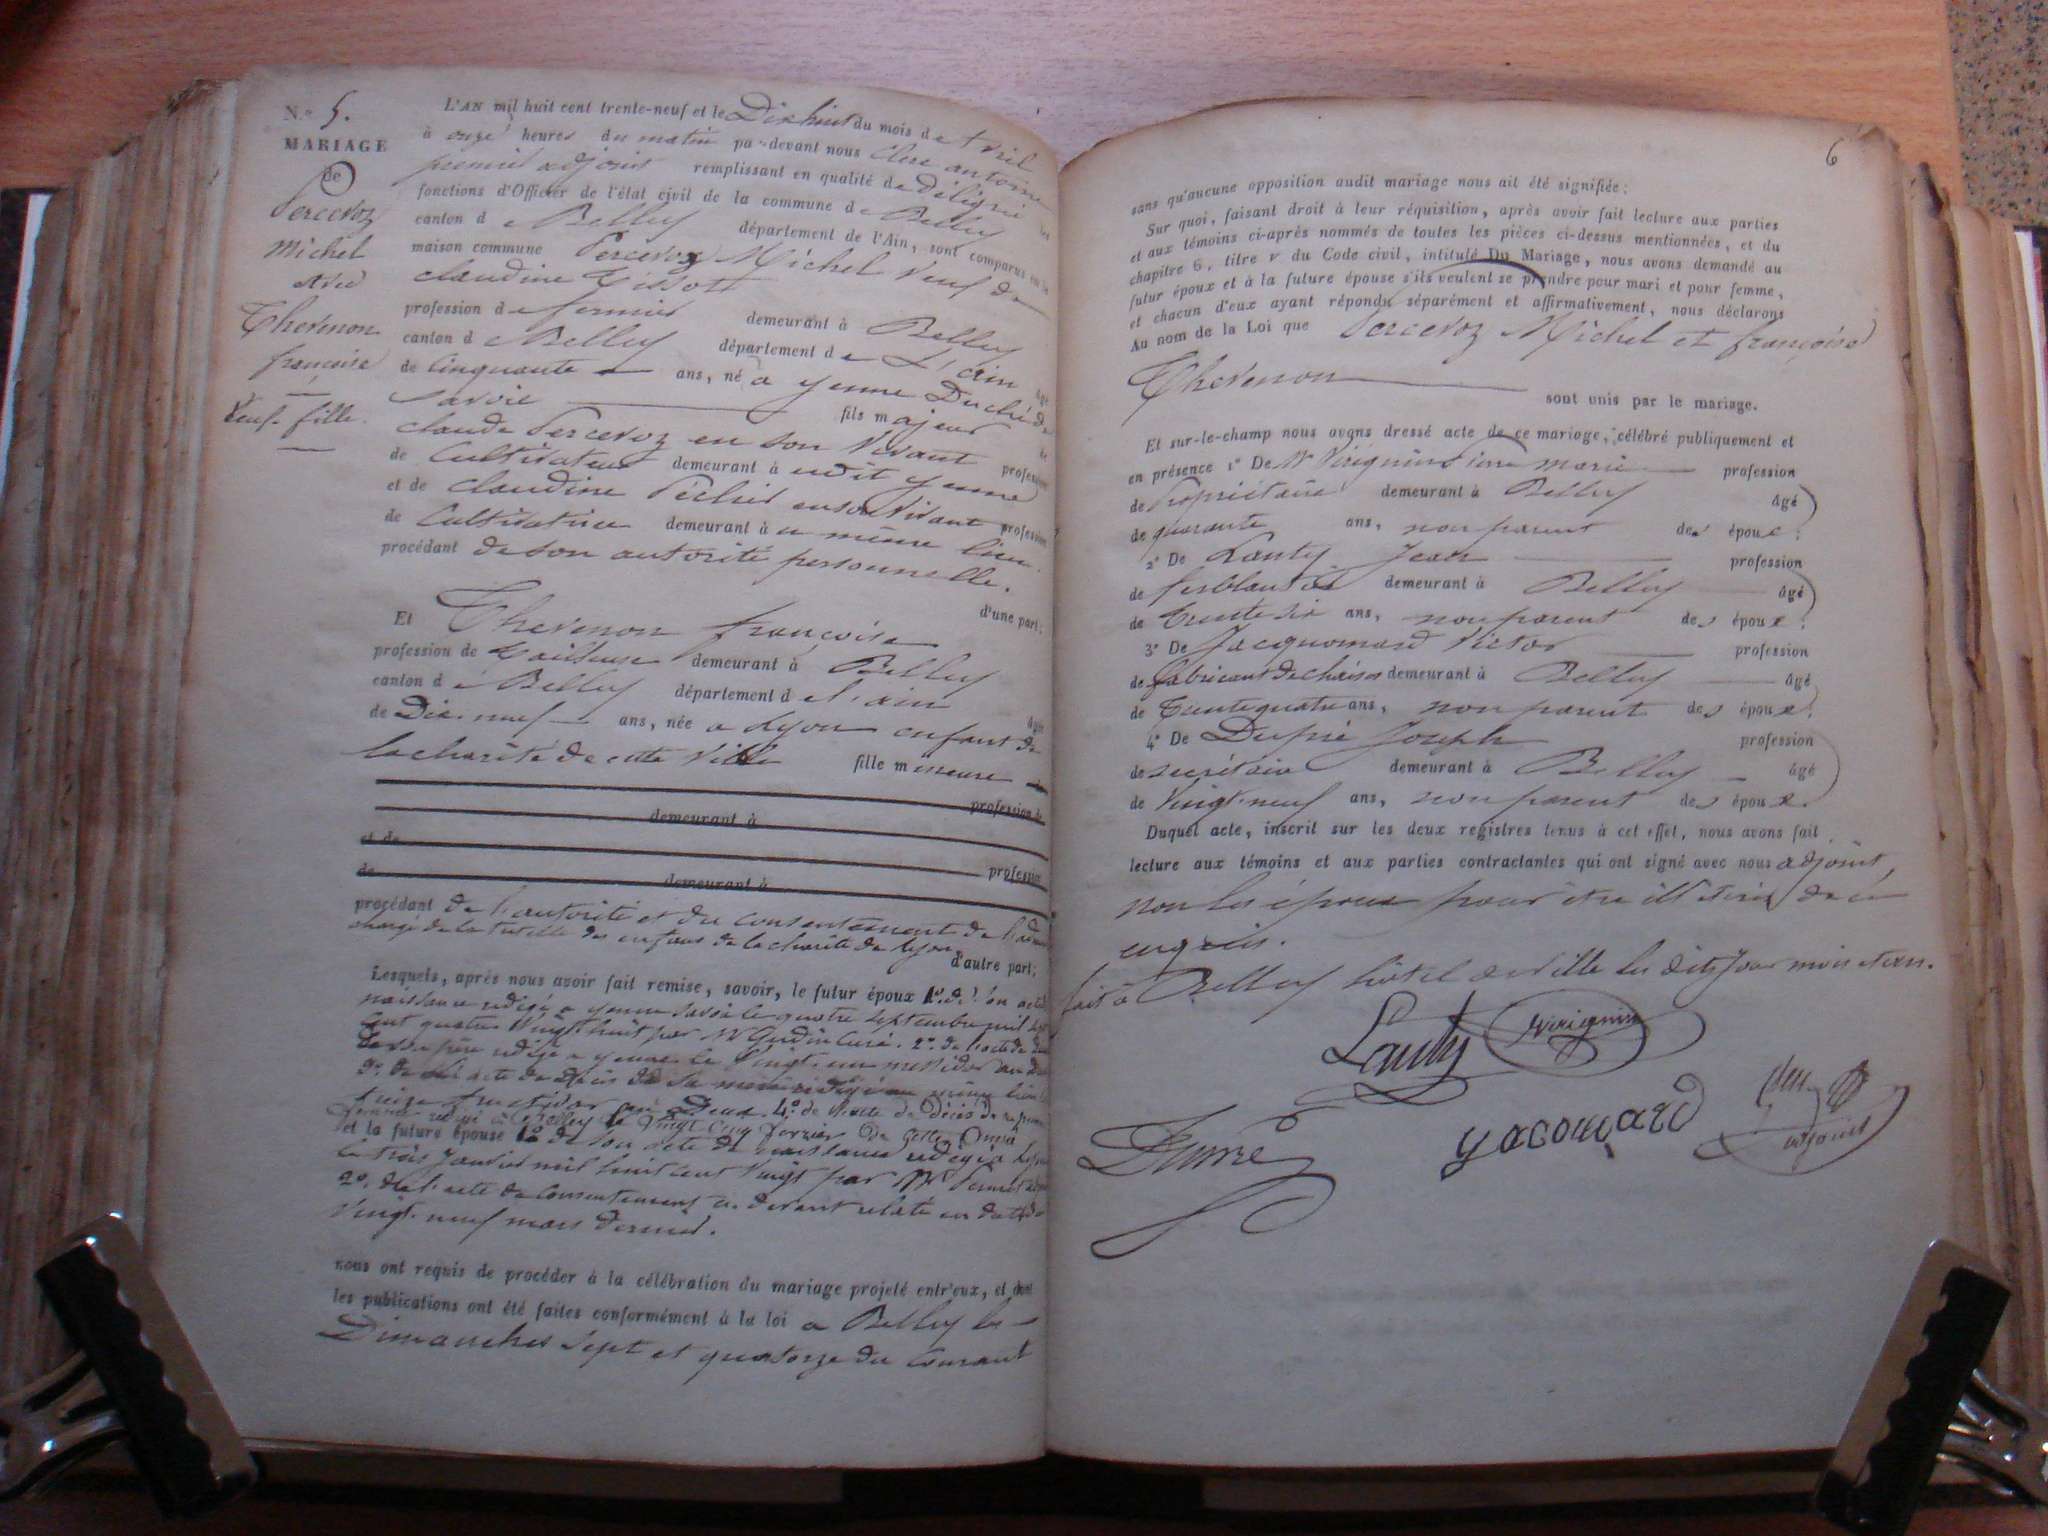 N.° 5.
MARIAGE
de
Percevoz
Michel
avec
Thevenon
françoise
Veuf. fille.
L'AN mil huit cent trente-neuf et le Dix huit du mois de Avril
à onze heures du matin par-devant nous Clerc antoine
premier adjoint remplissant en qualité de Délégué les
fonctions d'Officier de l'état civil de la commune de Belley
canton de Belley département de l'Ain, sont comparus en la
maison commune Percevoz Michel Veuf de
claudine Tissot
profession de fermier demeurant à Belley
canton de Belley département de L'ain âgé
de Cinquante ans, né a yenne Duché de
Savoie fils majeur de
claude Percevoz en son Vivant profession
de Cultivateur demeurant à udit yenne
et de claudine Péchet en son Vivant profession
de Cultivatrice demeurant à u même lieu.
procédant de son autorité personnelle.
d'une part;
Et Thevenon françoise
profession de tailleuse demeurant à Belley
canton de Belley département de l'ain âgée
de Dix-neuf ans, née a Lyon enfant de
la charité de cette Ville fille mineure de
profession de
demeurant à
et de profession
de demeurant à
procédant de l'autorité et du consentement de
chargé de la tutelle des enfans de la charité de Lyon.
d'autre part;
Lesquels, après nous avoir fait remise, savoir, le futur époux 1°. de son acte
naissance rédigé a yenne Savoie le quatre septembre mil sept
cent quatre Vingt huit par Mr Curé. 2°. de l'acte de
de son père rédigé a yenne le Vingt-un messidor an
3°. de acte de décès de sa mère rédigé au même lieu
treize fructidor an Deux. 4°. de l'acte de décès de sa
femme rédigé à Belley le Vingt cinq fevrier
et la future épouse 1° de son acte de naissance rédigé à Lyon
le trois Janvier mil huit cent Vingt par Mr
2°. de l'acte de Consentement ci-devant relaté en date de
Vingt-neuf mars Dernier.
nous ont requis de procéder à la célébration du mariage projeté entr'eux, et dont
les publications ont été faites conformément à la loi a Belley les
Dimanches sept et quatorze du Courant
6
sans qu'aucune opposition audit mariage nous ait été signifiée;
Sur quoi, faisant droit à leur réquisition, après avoir fait lecture aux parties
et aux témoins ci-après nommés de toutes les pièces ci-dessus mentionnées, et du
chapitre 6, titre v du Code civil, intitulé Du Mariage, nous avons demandé au
futur époux et à la future épouse s'ils veulent se prendre pour mari et pour femme,
et chacun d'eux ayant répondu séparément et affirmativement, nous déclarons
Au nom de la Loi que Percevoz Michel et françoise
Thevenon sont unis par le mariage.
Et sur-le-champ nous avons dressé acte de ce mariage, célébré publiquement et
en présence 1° De Mr Virignin marie profession
de Propriétaire demeurant à Belley âgé
de quarante ans, non parent des époux;
2° De Lanty Jean profession
de ferblantier demeurant à Belley âgé
de trente six ans, non parent des époux;
3° De Jacquomard Victor profession
de fabricant de chaises demeurant à Belley âgé
de trente quatre ans, non parent des époux;
4° De Dupré Joseph profession
de secrétaire demeurant à Belley âgé
de Vingt-neuf ans, non parent des époux.
Duquel acte, inscrit sur les deux registres tenus à cet effet, nous avons fait
lecture aux témoins et aux parties contractantes qui ont signé avec nous adjoint,
non les époux pour être illétirés de ce
enquis.
fait à Belley hôtel de ville les dits jour mois et an.
Lanty Virignin
Dupré yacomard
adjoint